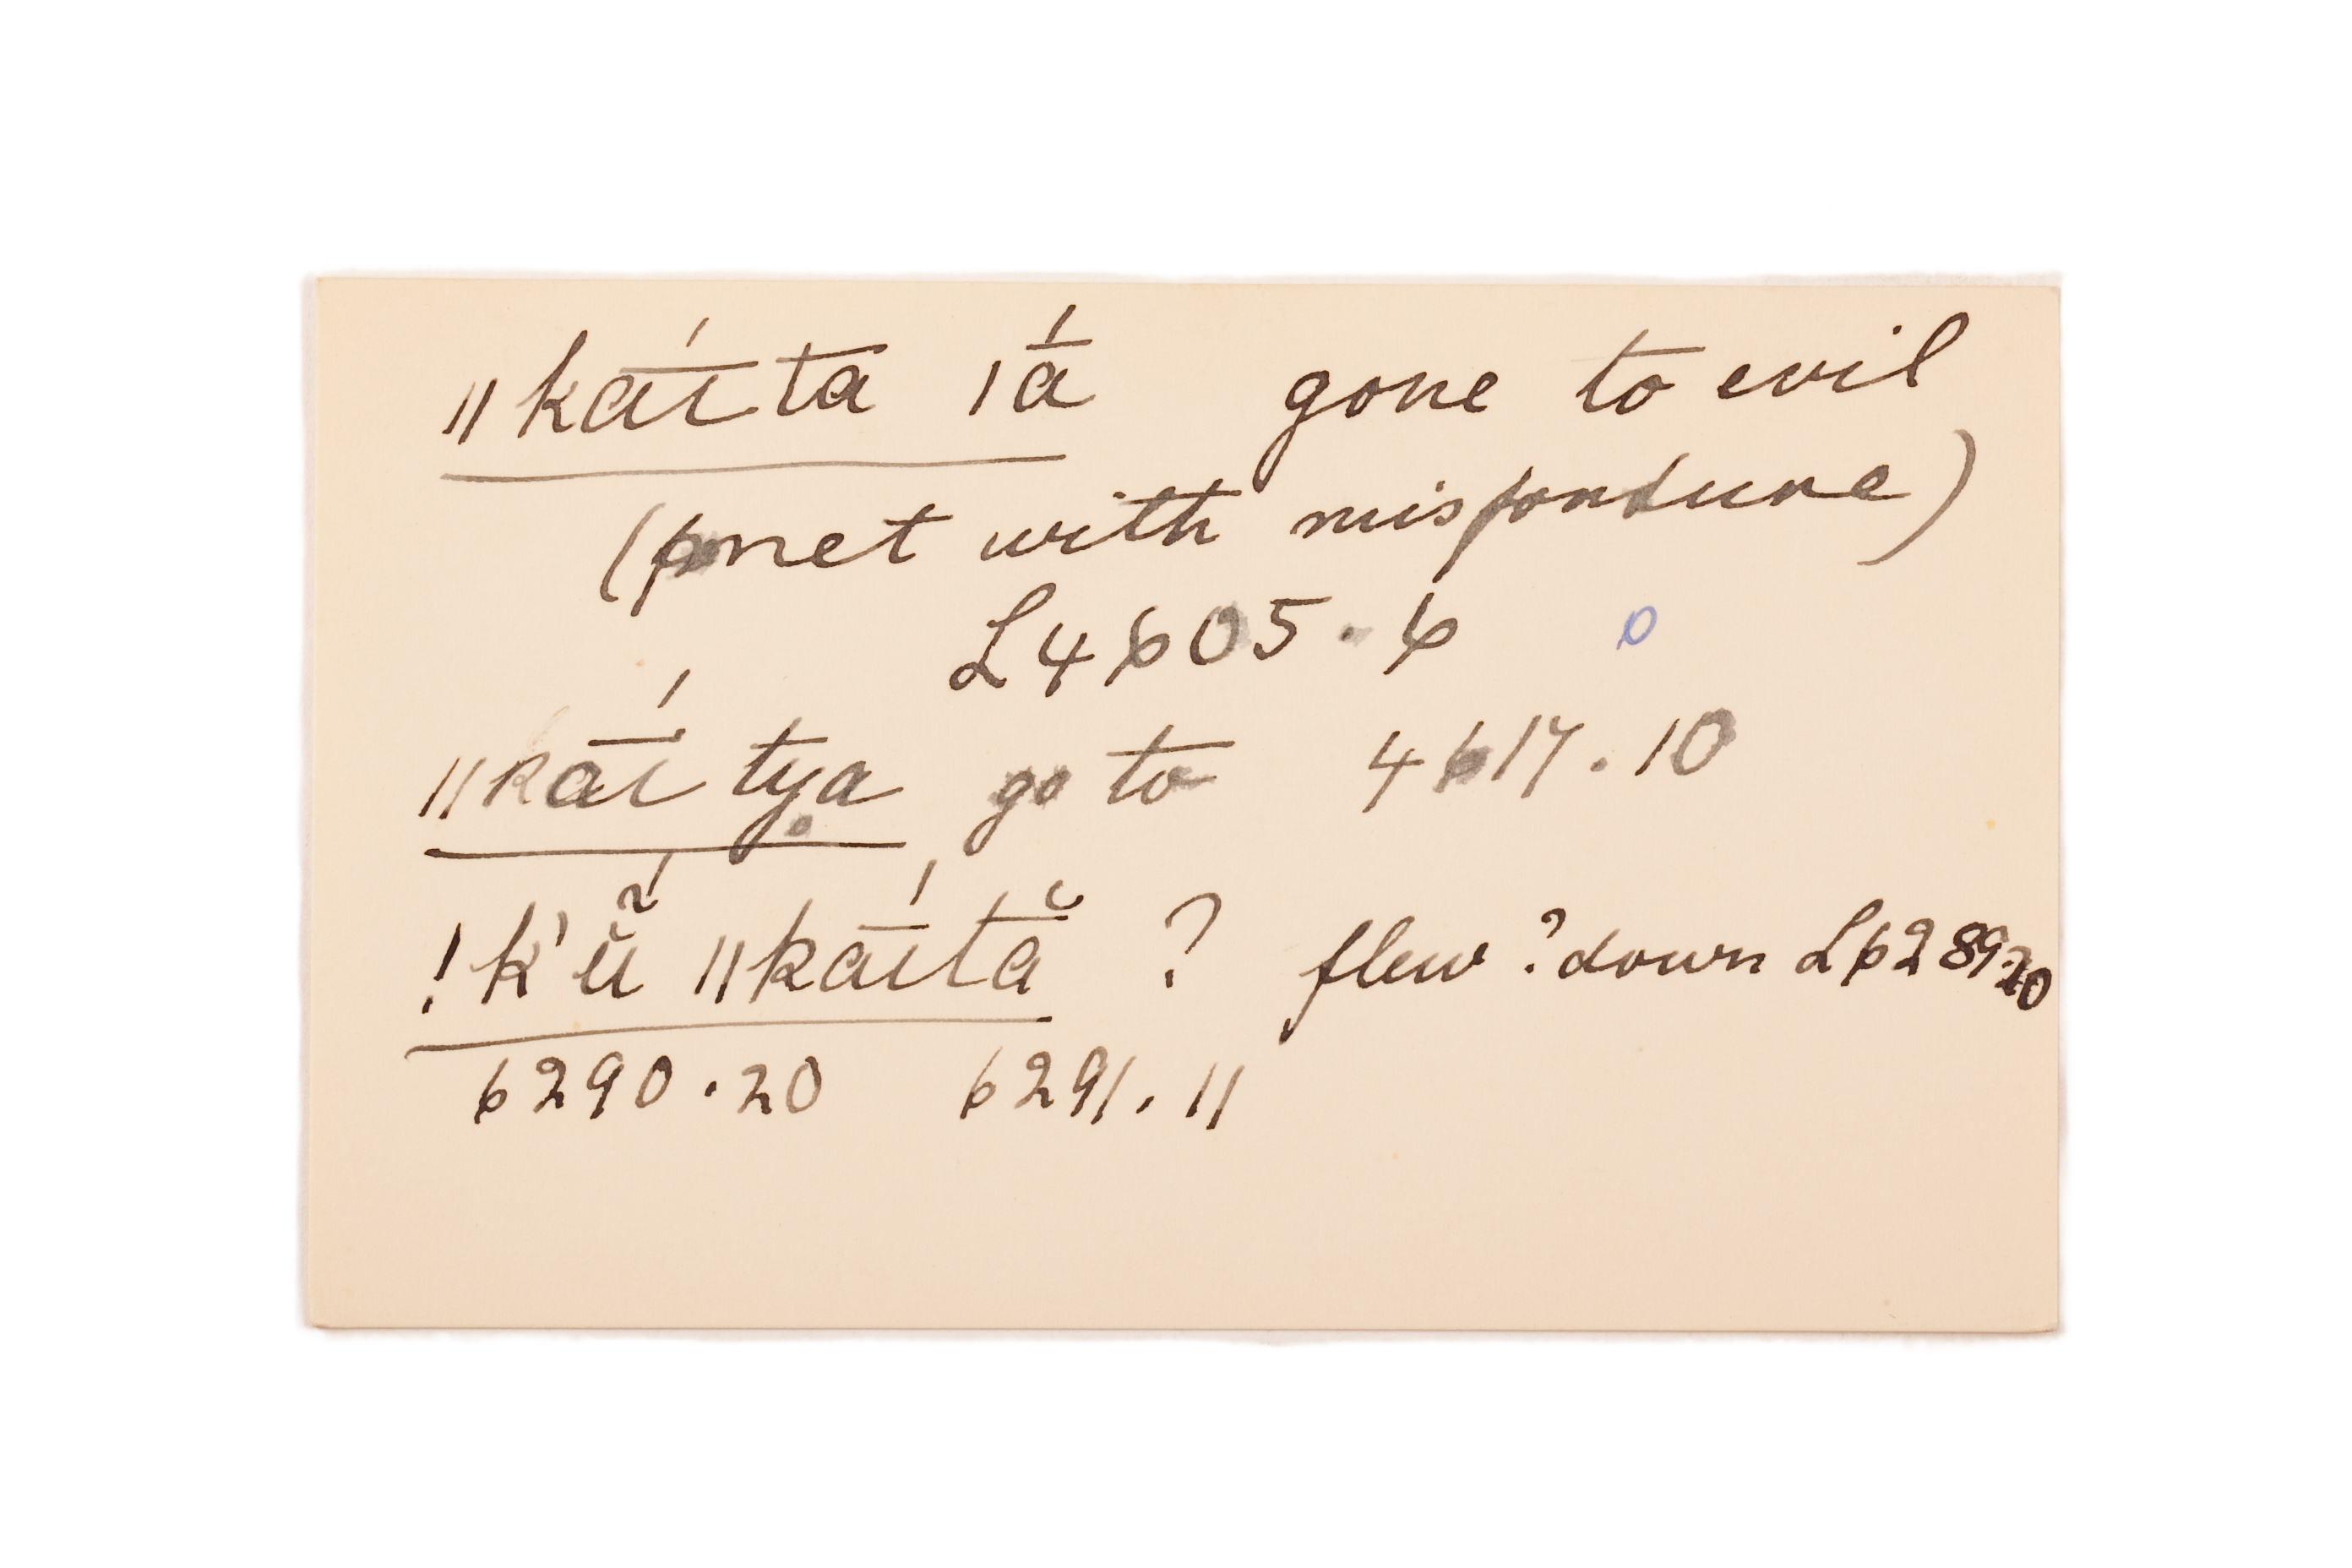 ǁkā́ı̄ta ǀā́ gone to evil
(met with misfortune)
L 4605.6 o
ǁkā́ı̄ tya go to 4617.10
!k'ṹ̆ ǁkā́ı̄tă ? flew ? down L 6289.20
6290.20 6291.11